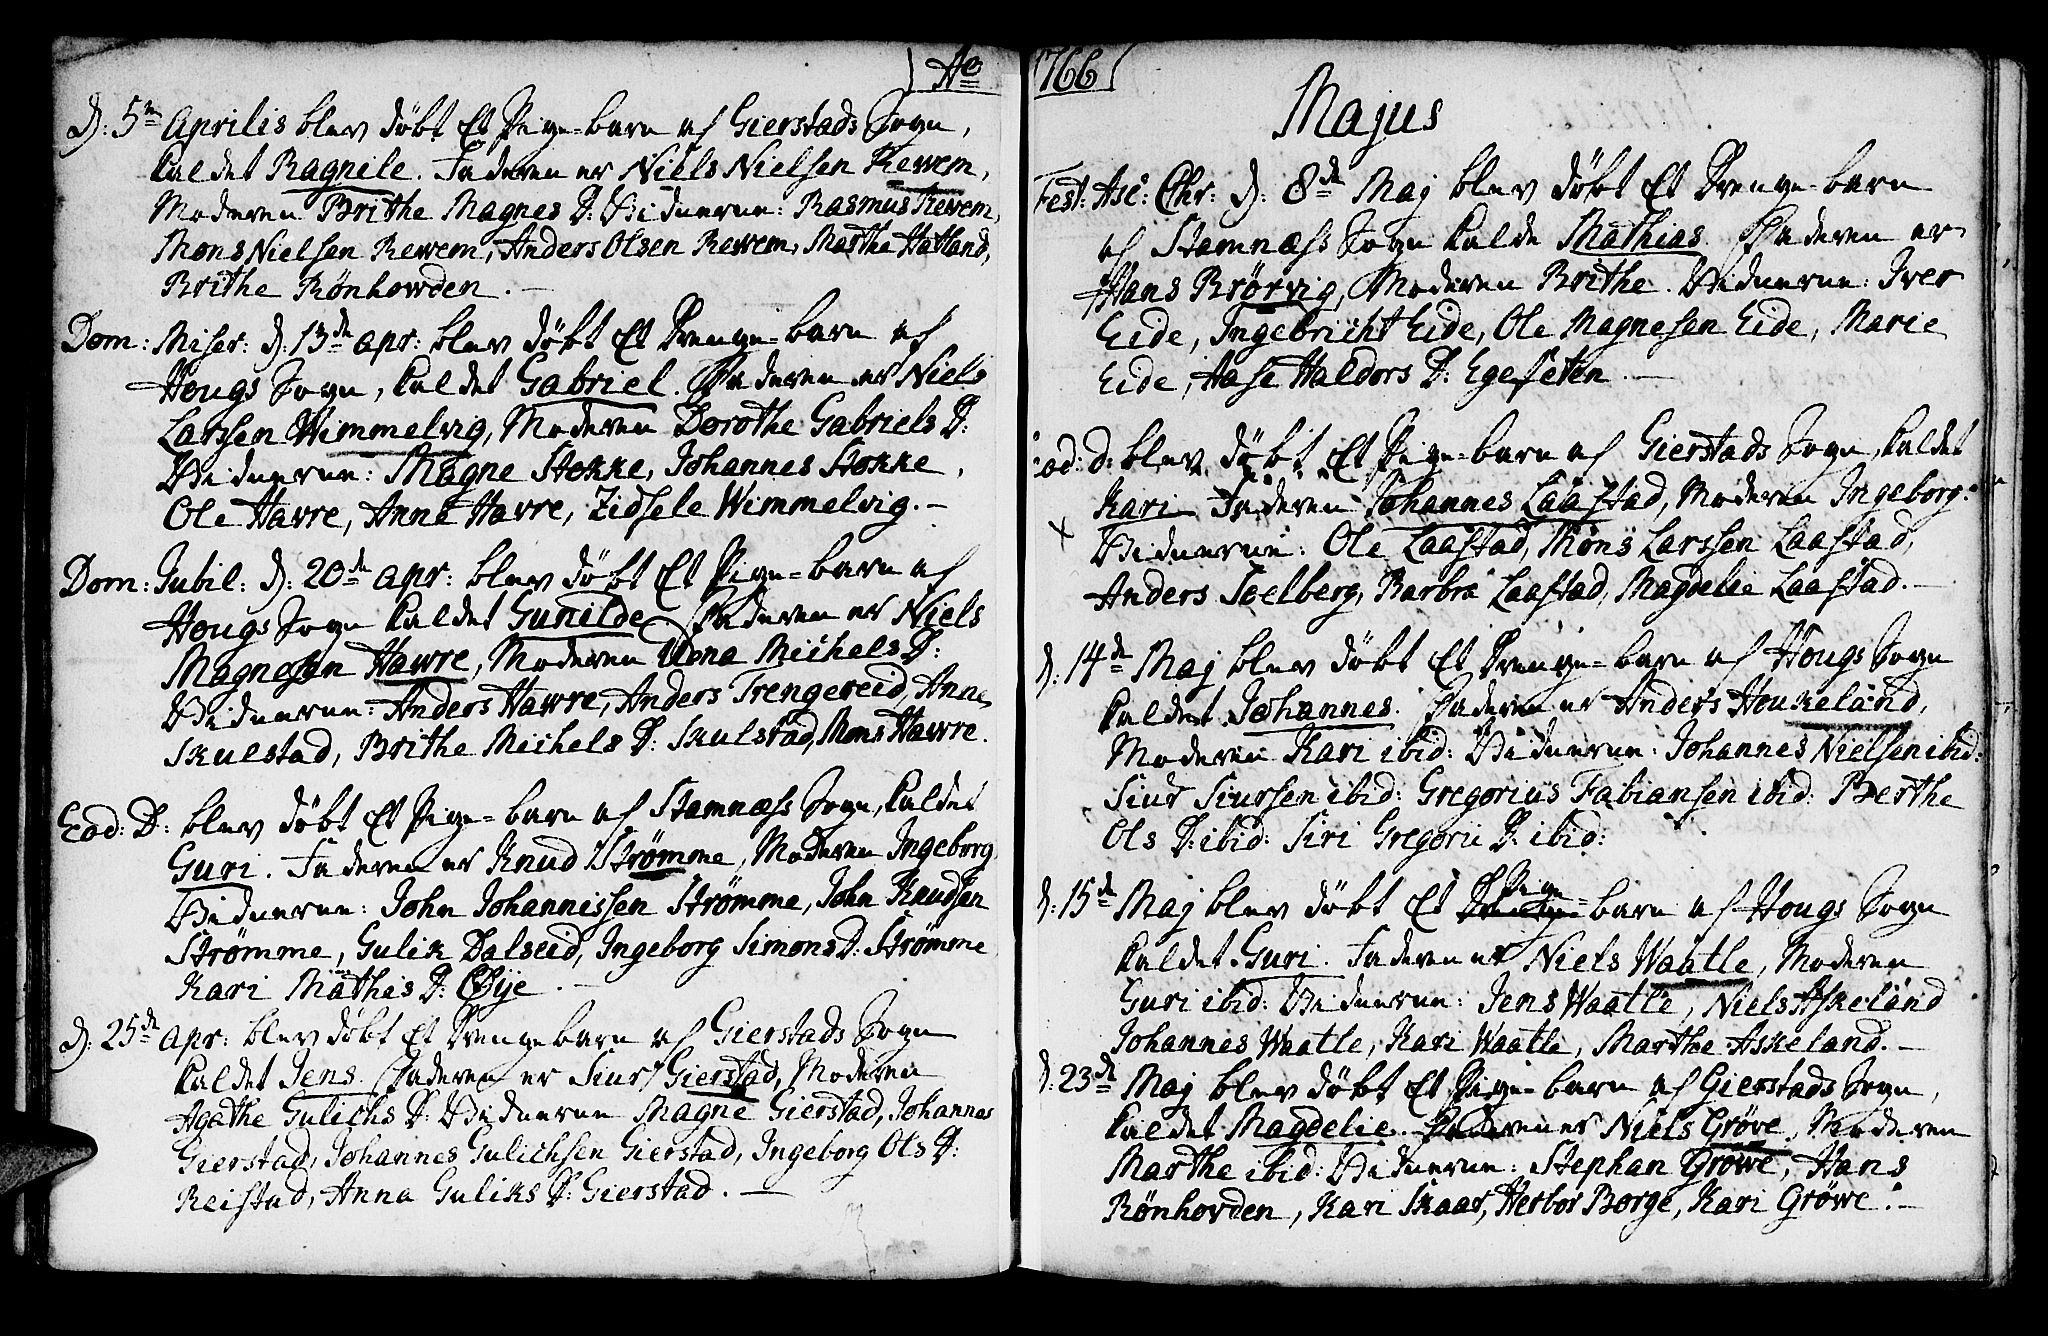 Ao
D: 5te Aprilis blev døbt Et Pige-barn af Gierstads Sogn,
kaldet Ragnile. Faderen er Niels Nielsen Rewem,
Moderen Brithe Magnes D: Vidnerne: Rasmus Rewem,
Mons Nielsen Rewem, Anders Olsen Rewem, Marthe Hatland,
Brithe Rönhowden.
Dom: Miser: d: 13de apr: blev døbt Et Drenge-barn af
Hougs Sogn, kaldet Gabriel. Faderen er Niels
Larssen Wimmelvig, Moderen Dorothe Gabriels D:
Vidnerne: Magne Stokke, Johannes Stokke,
Ole Havre, Anne Havre, Zidsele Wimmelvig.-
Dom: Jubil: d: 20de apr: blev døbt Et Pige-barn af
Hougs Sogn kaldet Gunilde Faderen er Niels
Magnesen Hawre, Moderen Uona Michels D:
Vidnerne: Anders Hawre, Anders Trengereid, Anne
Skulstad, Brithe Michels D: Skulstad, Mons Hawre.
Eod: D: blev døbt Et Pige-barn af Stamnæss Sogn, kaldet
Guri. Faderen er Knud Strømme, Moderen Ingeborg
Vidnerne: John Johannissen Strømme, John Knudsen
Strømme, Gulik Dalseid, Ingeborg Simons D: Strømme
Kari Mathis D: Øije.-
d: 25de apr: blev døbt Et Drengebarn af Gierstads Sogn
kaldet Jens. Faderen er Siur Gierstad, Moderen
Agathe Gulichs D: Vidnerne Magne Gierstad, Johannes
Gierstad, Johannes Gulichsen Gierstad, Ingeborg Ols D:
Reistad, Anna Guliks D: Gierstad.-
1766
Majus
Fest: Asc: Chr: d: 8de Maj blev døbt Et Drenge-barn
af Stamnæss Sogn kalde Mathias. Faderen er
Hans Brørvig, Moderen Brithe. Vidnerne: Iver
Eide, Ingebricht Eide, Ole Magnesen Eide, Marie
Eide, Aase Haldors D: Egeseten.-
eod: d: blev døbt Et Pige-barn af Gierstads Sogn, kaldet
Kari Faderen Johannes Laastad, Moderen Ingeborg:
x Vidnerne: Ole Laastad, Mons Larssen Laastad,
Anders Soelberg, Barbra Laastad, Magdelie Laastad.-
d: 14de Maj blev døbt Et Drenge-barn af Hougs Sogn
kaldet Johannes. Faderen er Anders Houkeland,
Moderen Kari ibid: Vidnerne: Johannes Nielsen ibid:
Siur Siurssen ibid: Gregorius Fabiansen ibid: Berthe
Ols D: ibid: Siri Gregorii D: ibid:
d: 15de Maj blev døbt Et Pige-barn af Hougs Sogn
kaldet Guri. Faderen er Niels Waatle, Moderen
Guri ibid: Vidnerne: Jens Waatle, Niels Askeland
Johannes Waatle, Kari Waatle, Marthe Askeland.-
d: 23de Maj blev døbt Et Pige-barn af Gierstads Sogn,
kaldet Magdelie. Faderen er Niels Gröve, Moderen
Marthe ibid: Vidnerne: Stephan Growe, Hans
Rönhovden, Kari Skaar, Herbor Borge, Kari Gröwe.-